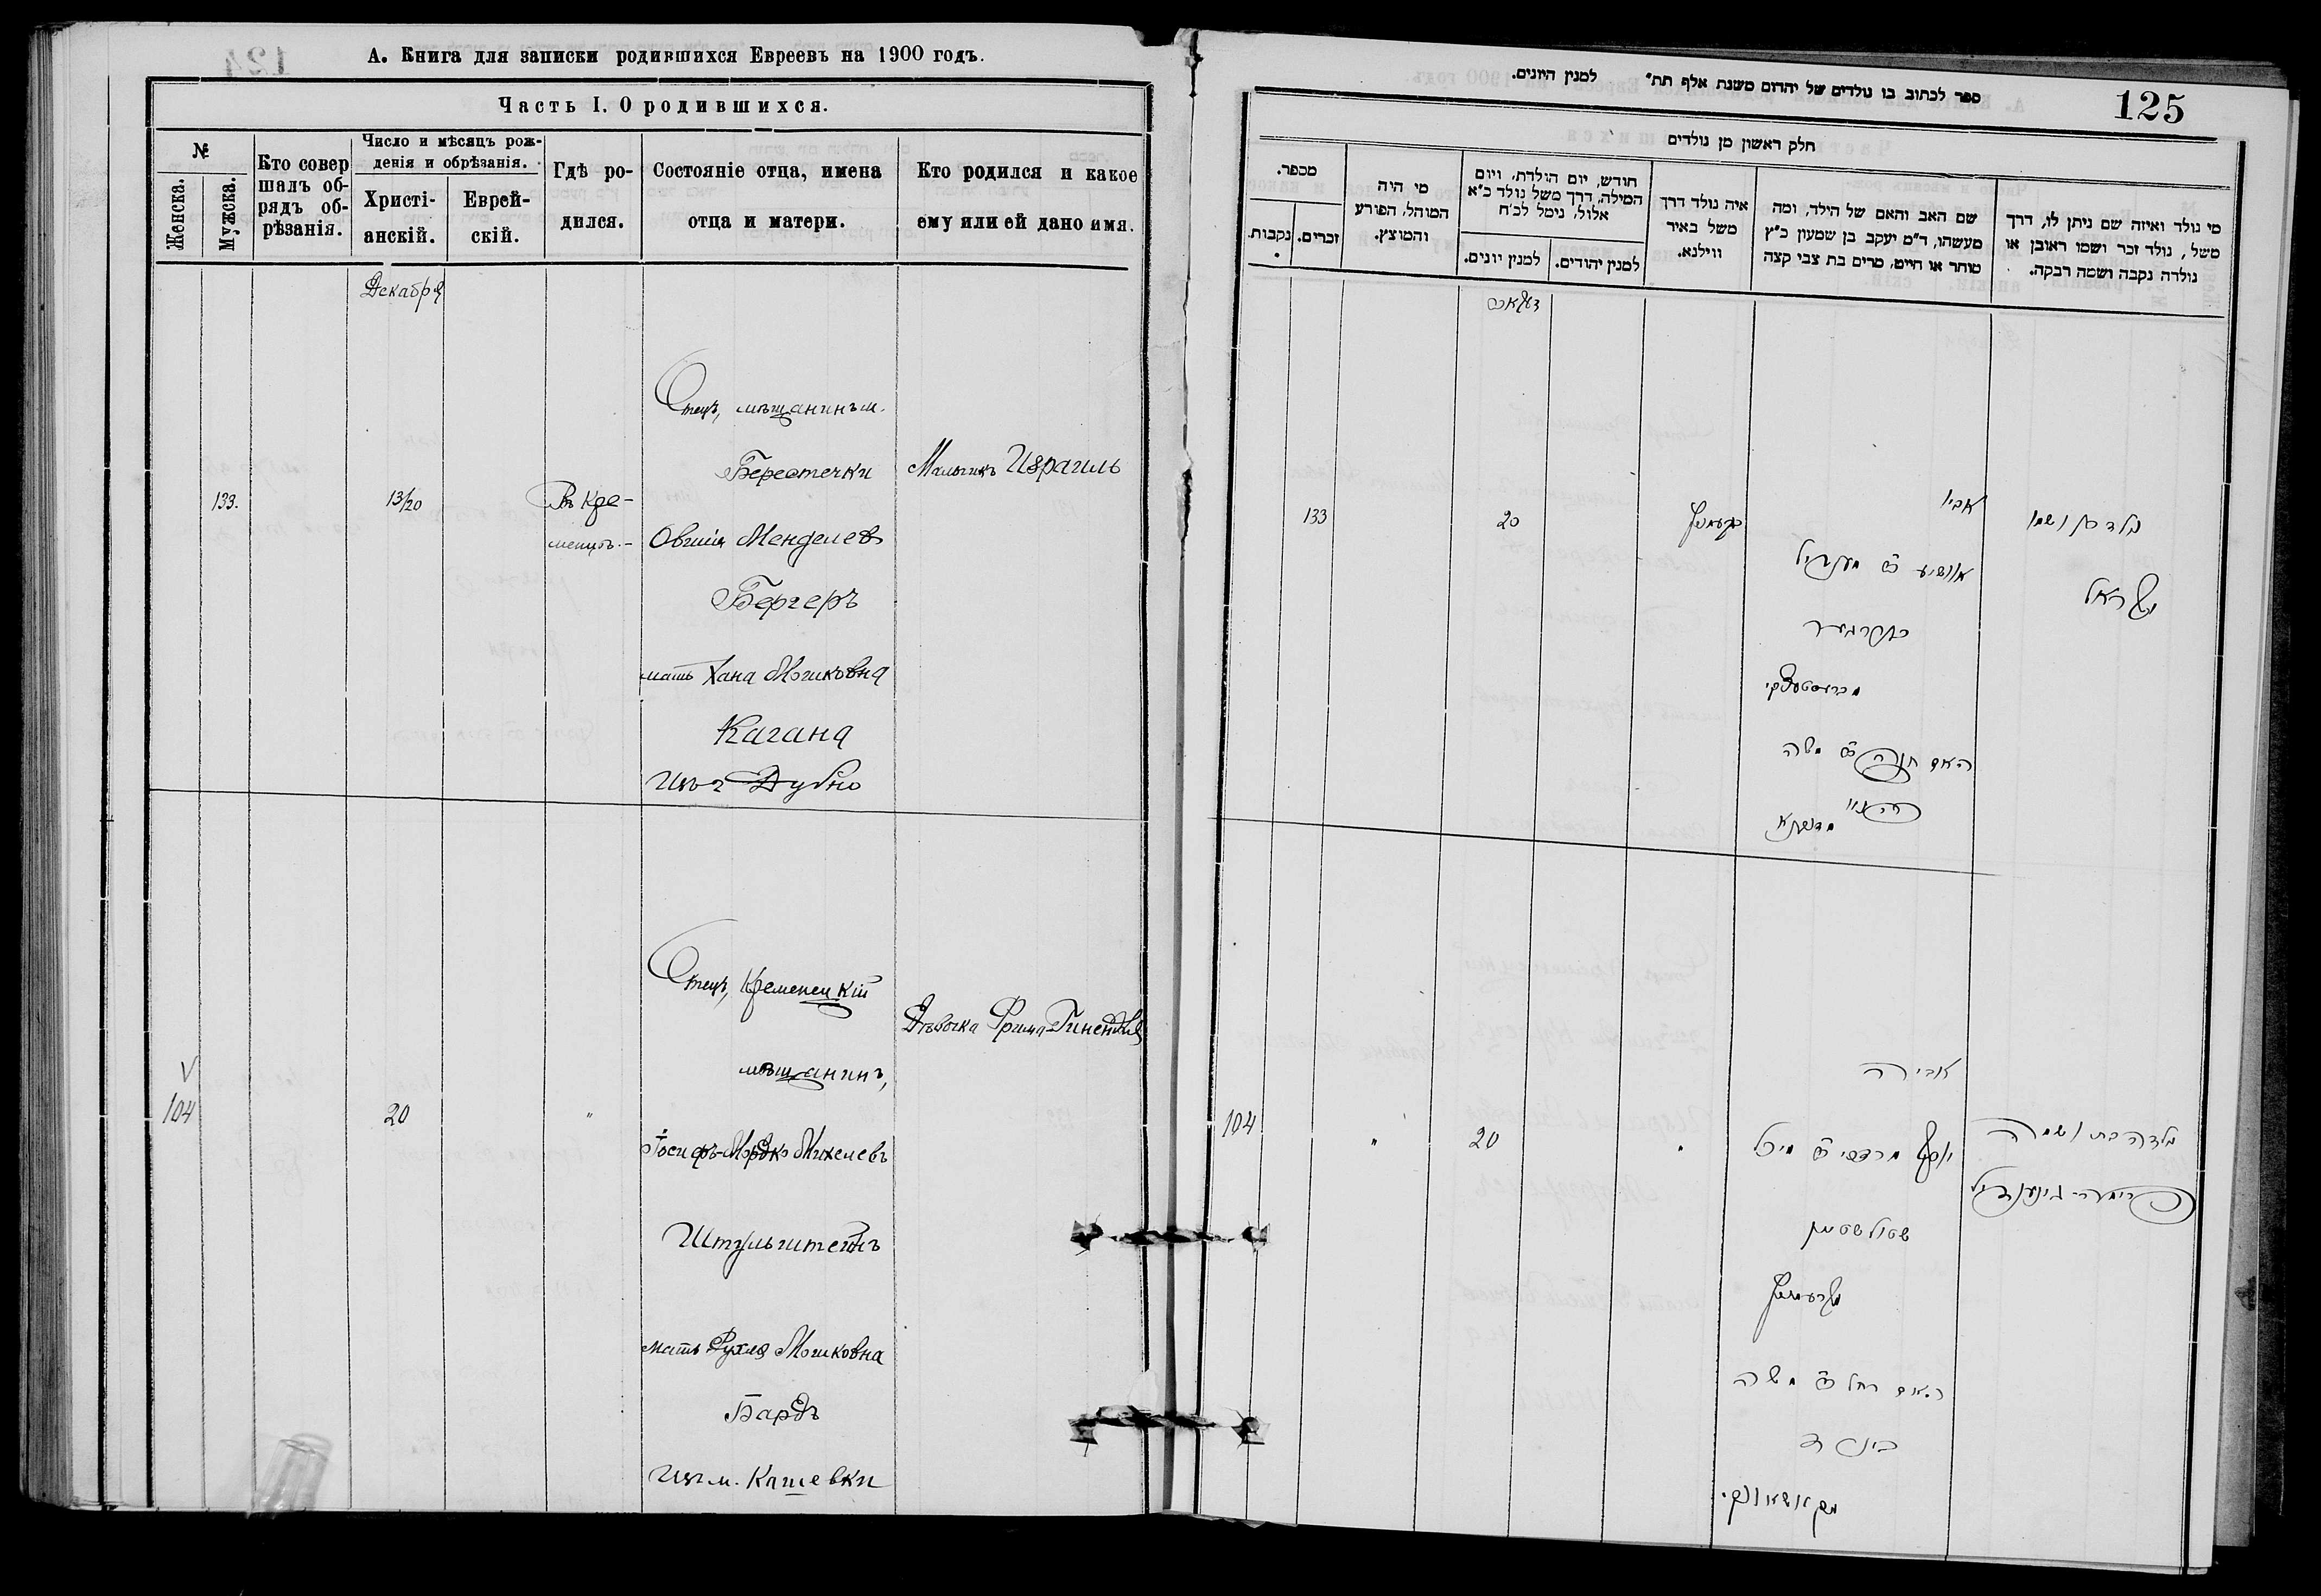 А. Книга для записки родившихся Евреевъ на 1900 годъ.
Часть I. О родившихся.
№
Женска.
Мужска.
Кто совер
шалъ об-
рядъ об-
рѣзанія.
Число и мѣсяцъ рож-
денія и обрѣзанія.
Христі-
анскій.
Еврей-
скій.
Гдѣ ро-
дился.
Состояніе отца, имена
отца и матери.
Кто родился и какое
ему или ей дано имя.
Декабря
133.
13/20
Въ Кре-
менцѣ.-
Отецъ, мѣщанинъ м.
Берестечки
Овшія Менделев
Бергеръ
мать Хана Мошковна
Кагана
изъ г Дубно
Мальчикъ Израиль
104
20
"
Отецъ, Кременецкій
мѣщанинъ,
Іосифъ-Мордко Михелевъ
Штульштейнъ
мать Рухля Мошковна
Бардъ
изъ м. Кашевки
Дѣвочка Фрима-Гинендля
125
ספר לכתוב בו נולדים של יהדום משנת אלף תת״ למנין היונים.
חלק ראשון מן נולדים
מספר.
נקבות.
זכרים.
מי היה
המוהל, הפורע
והמוצץ.
חודש, יום הולדת, ויום
המילה, דרך משל נולד כ״א
אלול, נימל לכ״ח
למנין יונים.
למנין יהודים.
איה נולד דרך
משל באיר
ווילנא.
שם האב והאם של הילד, ומה
מעשהו, ד״מ יעקב בן שמעון כ״ץ
סוחר או חייט, מרים בת צבי קצה
מי נולד ואיזה שם ניתן לו, דרך
משל, נולד זכר ושמו ראובן או
נולדה נקבה ושמה רבקה.
133
20
אביו
האם חנה משה
ישראל
104
"
20
"
אביה
יוסף מרדכי מיכל
שטולשטיין
האם רחל משה
נולדה בת ושמה
פרימה-גינענדיל